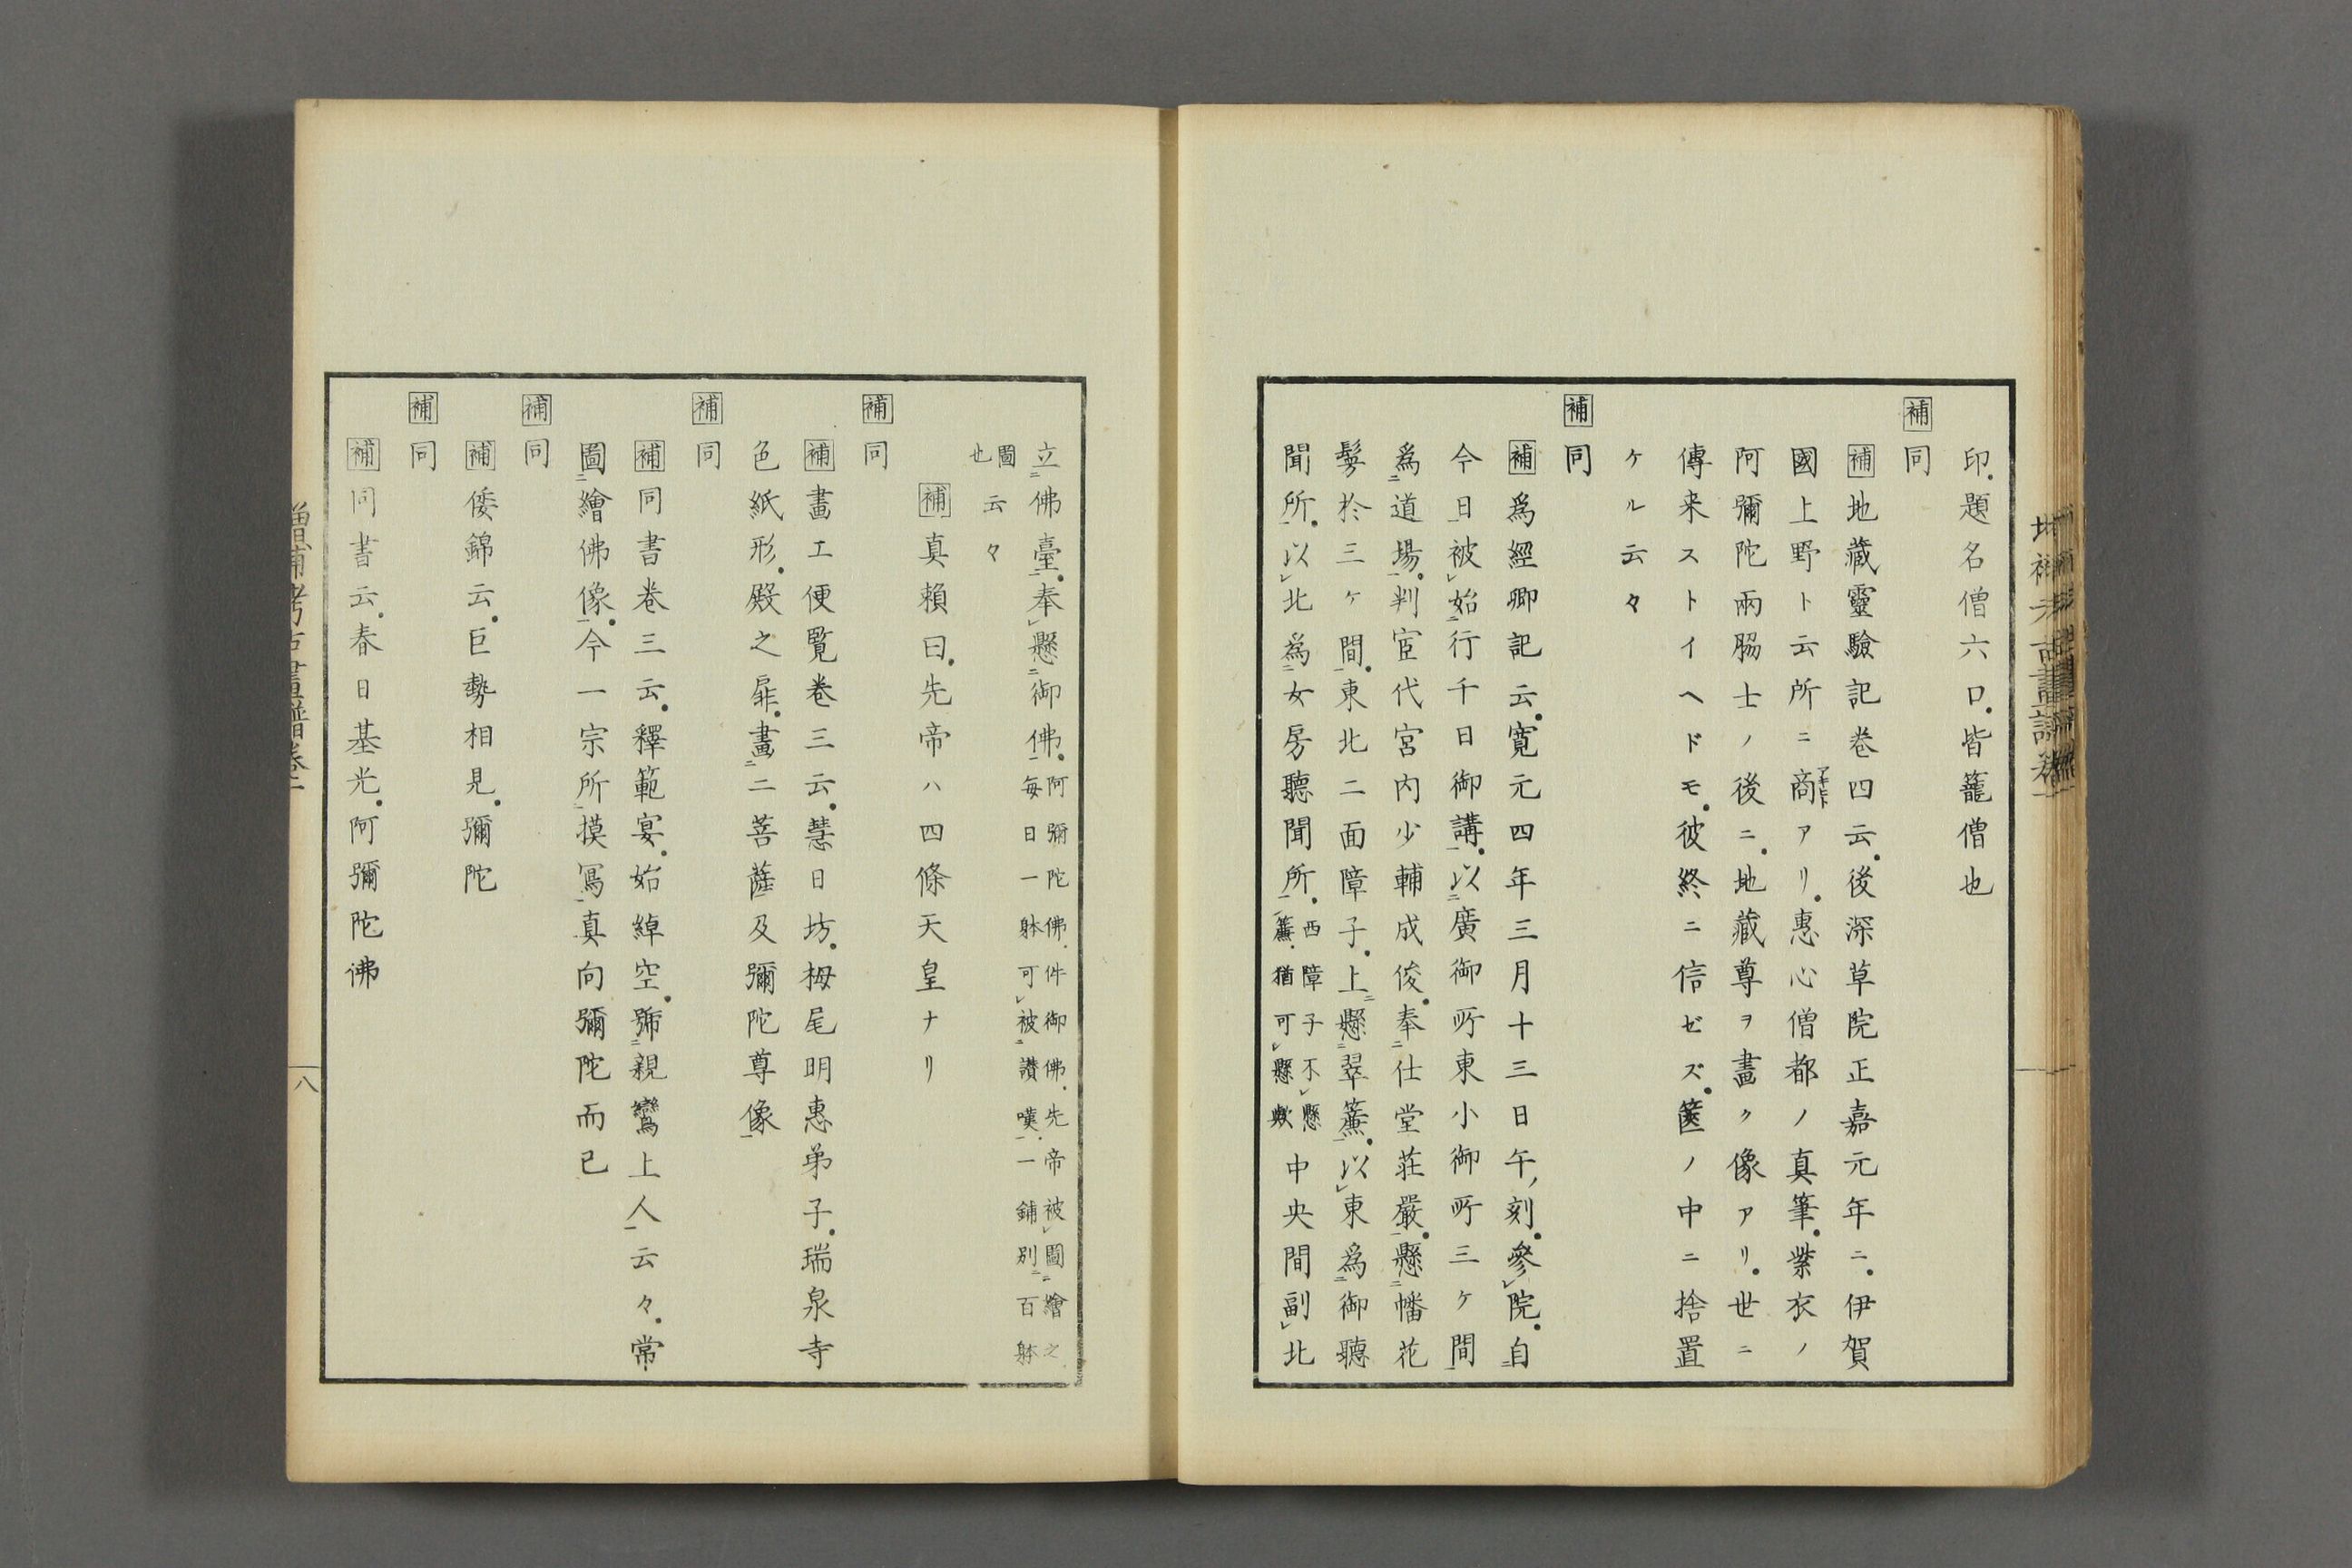 印題名僧六口皆籠僧也
補 同
補 地藏靈驗記卷四云後深草院正嘉元年ニ伊賀
國上野ト云所ニ商アキビトアリ惠心僧都ノ真筆紫衣ノ
阿彌陀兩脇士ノ後ニ地藏尊ヲ畫ク像アリ世ニ
傳来ストイヘドモ彼終ニ信ゼズ篋ノ中ニ捨置
ケル云々
補 同
補 爲經卿記云寛元四年三月十三日午刻參㆑院自㆓
今日㆒被㆑始㆓行千日御講㆒以㆓廣御所東小御所三ヶ間㆒
爲㆓道場㆒判宦代宮内少輔成俊奉㆓仕堂荘嚴㆒懸㆓幡花
鬘於三ヶ間㆒東北二面障子上㆓懸㆓翠簾㆒以㆑東爲㆓御聽
聞所㆒以㆑北爲㆓女房聽聞所㆒西障子不㆑懸㆑簾猶可㆑懸歟中央間副㆑北
立㆓佛臺㆒奉㆑懸㆓御佛㆒阿彌陀佛件御佛先帝被㆑圖㆓繪之㆒毎日一躰可㆑被㆓讃嘆㆒一鋪別㆓百躰
圖也云々
補 真賴曰先帝ハ四條天皇ナリ
補 同
補 畫工便覧卷三云慧日坊栂尾明惠弟子瑞泉寺
色紙形殿之扉畫㆓二菩薩及彌陀尊像㆒
補 同
補 同書卷三云釋範宴始綽空號㆓親鸞上人㆒云々常
圖㆓繪佛像㆒今一宗所㆓摸寫㆒真向彌陀而已
補 同
補 倭錦云巨勢相見彌陀
補 同
補 同書云春日基光阿彌陀佛
增補考古畫譜卷二
八